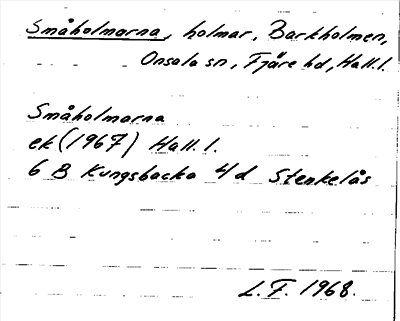 Småholmarna, holmar, Barkholmen,
Onsala sn, Fjäre hd, Hall.l.
Småholmarna
ek (1967) Hall.l.
6 B Kungsbacka 4d Stenkelås
L.F. 1968.